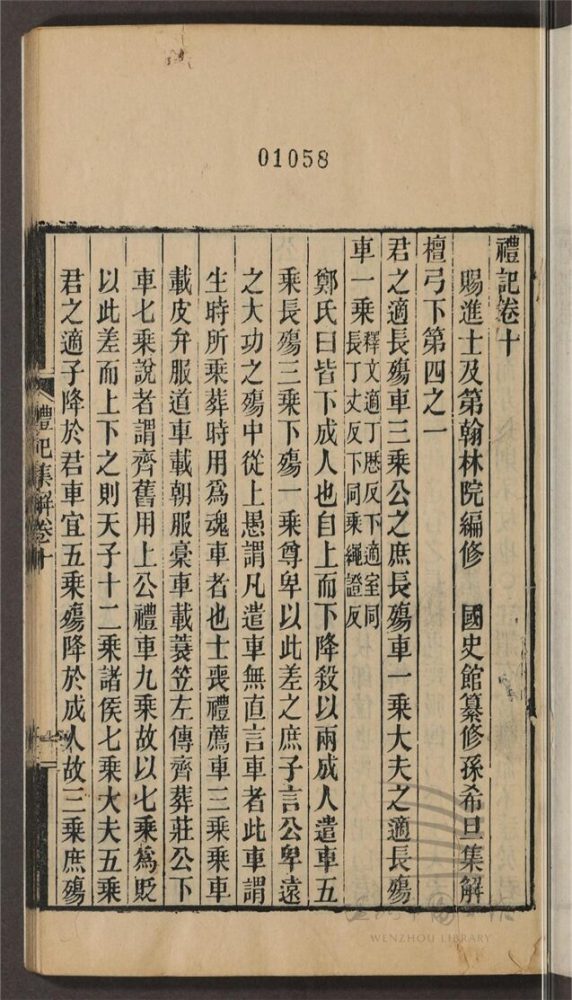 01058
禮記卷十
賜進士及第翰林院編修　國史館纂修孫希旦集解
檀弓下第四之一
君之適長殤車三乘公之庶長殤車一乘大夫之適長殤
車一乘釋文適丁歷反下適室同
長丁丈反下同乘繩證反
鄭氏曰皆下成人也自上而下降殺以兩成人遣車五
乘長殤三乘下殤一乘尊卑以此差之庶子言公卑遠
之大功之殤中從上愚謂凡遣車無直言車者此車謂
生時所乘葬時用爲魂車者也士喪禮薦車三乘乘車
載皮弁服道車載朝服稾車載蓑笠左傳齊葬莊公下
車七乘說者謂齊舊用上公禮車九乘故以七乘爲貶
以此差而上下之則天子十二乘諸侯七乘大夫五乘
君之適子降於君車宜五乘殤降於成人故三乘庶殤
禮記集解卷十
WENZHOU LIBRARY